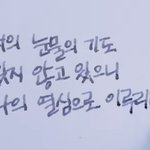 의 눈물의 기도
않고 있으니
나의 열심으로 이루리